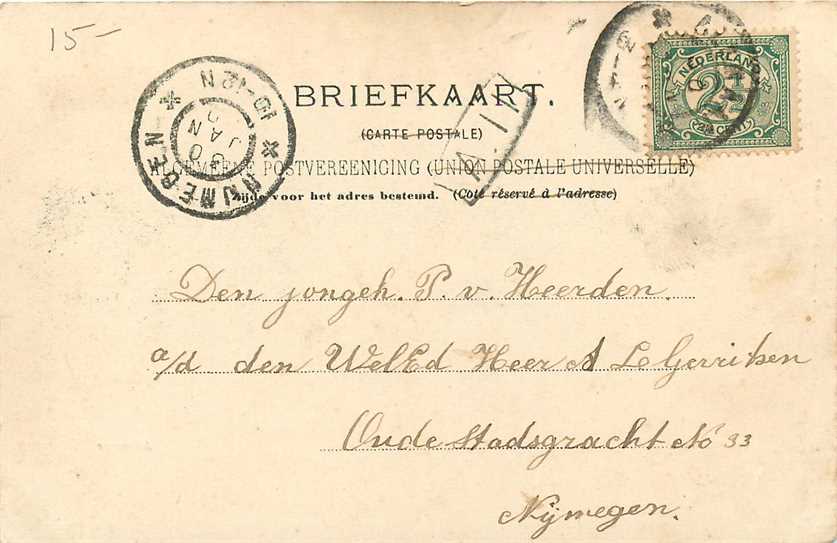 15-
BRIEFKAART.
(CARTE POSTALE)
ALGEMEENE POSTVEREENIGING (UNION POSTALE UNIVERSELLE)
Zijde voor het adres bestemd. (Côté réservé à l'adresse)
NIJMEGEN
10-12N
JAN
NEDERLAND
2½
CENT
Den jongeh. P. v. Heerden.
a/d. den WelEd Heer A Le Gerritsen
Oude Stadsgracht No 33
Nijmegen.